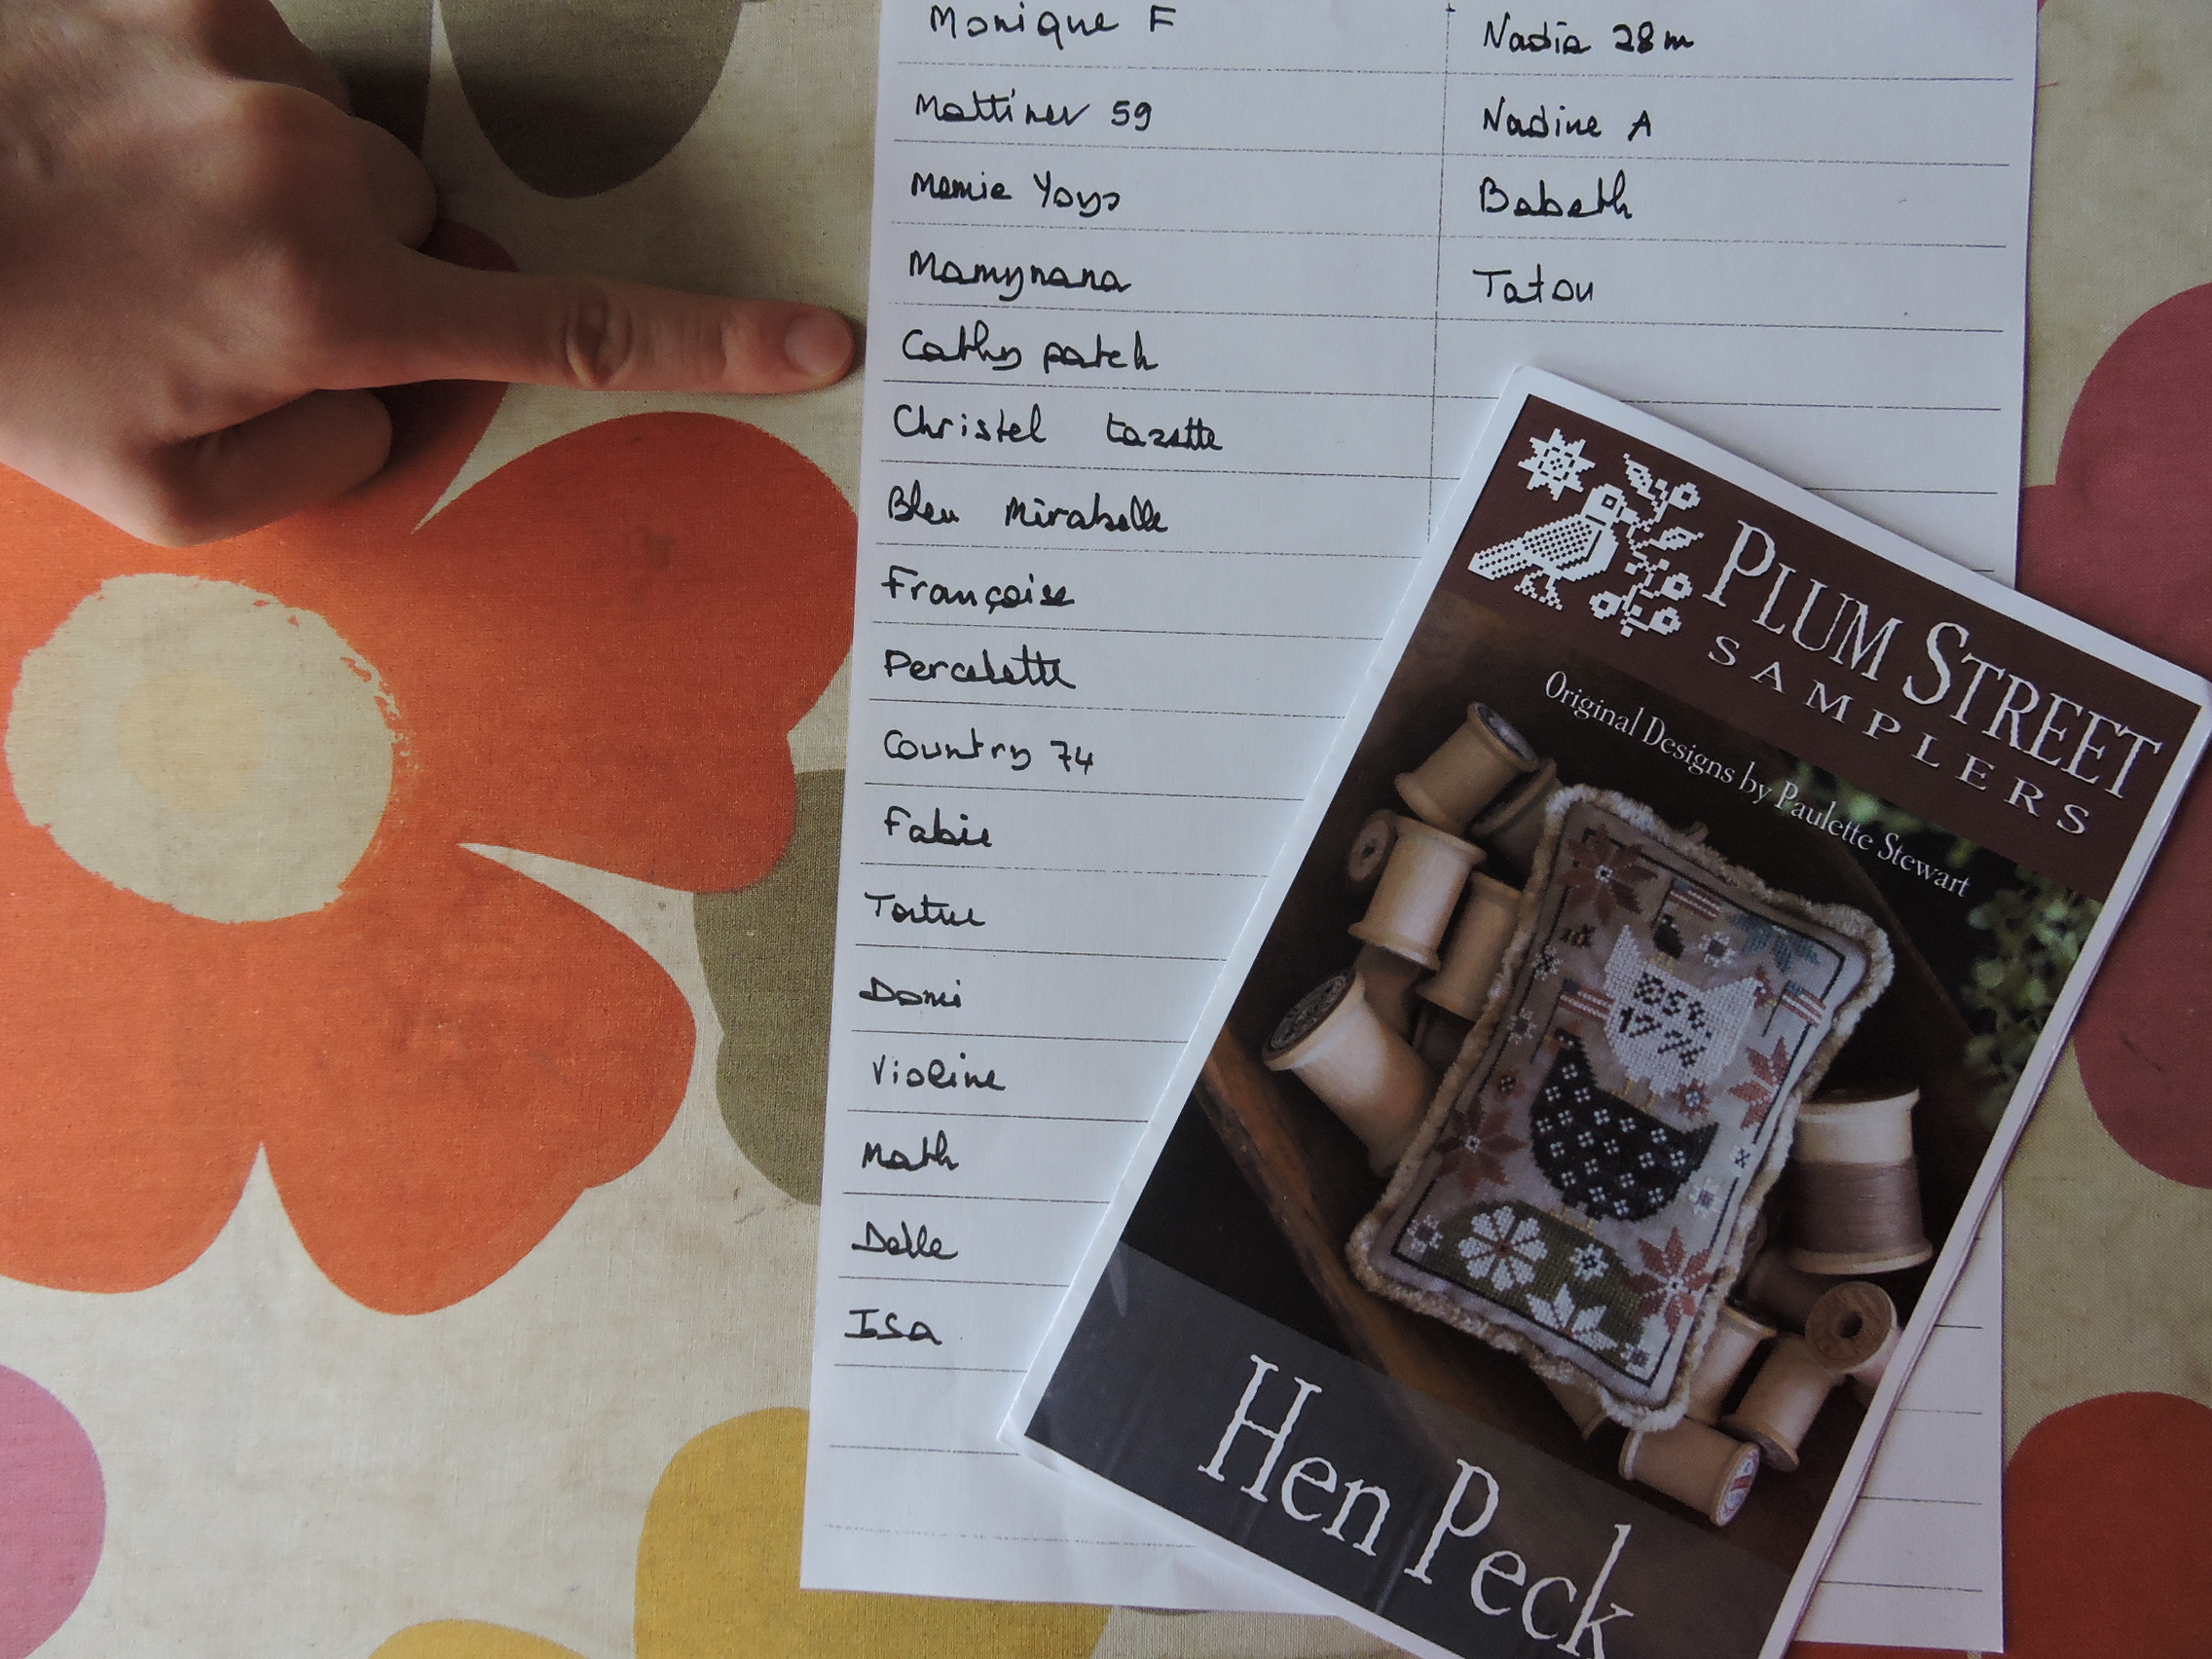 Monique F
Mattiner 59
Mamie Yoyo
Mamynana
Cathy patch
Christel tazette
Bleu Mirabelle
Françoise
Percelette
Country 74
Fabie
Tortue
Domi
Violine
Math
Delle
Isa
Nadia 28m
Nadine A
Babeth
Tatou
PLUM STREET
SAMPLERS
Original Designs by Paulette Stewart
EST.
1776
Hen Peck